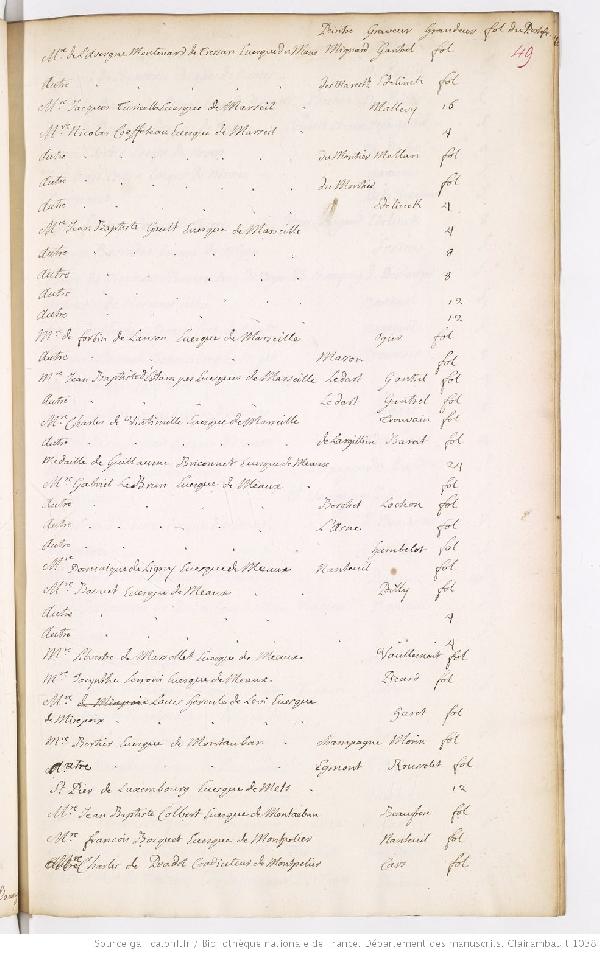 Peintre Graveur Grandeur fol du Portefe
49
Mre de Lavergne Montenard de Tressan Euesque du Mans Mignard Gantrel fol
Autre des Marecs Edelinck fol
Mre Jacques Turicella Euesque de Marseil Mallery 16
Mre Nicolas Coeffeteau Euesque de Marseil 4
Autre du Montier Mellan fol
Autre du Montier fol
Autre Edelinck 4
Mre Jean Baptiste Gault Euesque de Marseille 4
Autre 8
Autre 8
Autre 12
Autre 12
Mre de forbin de Janson Euesque de Marseille Ogier fol
Autre Mason fol
Mre Jean Baptiste d'Estampes Euesque de Marseille Ledart Gantrel fol
Autre Ledart Gantrel fol
Mre Charles de Vintimille Euesque de Marseille Trouvain fol
Autre de Largilliere Barat fol
Medaille de Guillaume Briconnet Euesque de Meaux 24
Mre Gabriel Le Brun Euesque de Meaux fol
Autre Lochon fol
Autre fol
Autre Humbelot fol
Mre Dominique de Ligny Euesque de Meaux Nanteuil fol
Mre Bossuet Euesque de Meaux fol
Autre 4
Autre 4
Mre Silvestre de Marcillet Euesque de Mende fol
Mre Picard fol
Mre de Mirepoix Louis Hercule de Levi Euesque
de Mirepoix Huret fol
Mre Bertier Euesque de Montauban Champagne Morin fol
Autre Egmont Rousselet fol
St Pier de Luxembourg Euesque de Mets 12
Mre Jean Baptiste Colbert Euesque de Montauban fol
Mre françois Bosquet Euesque de Montpelier Nanteuil fol
Mre Charles de Pradel Coadiuteur de Montpelier Cars fol
Source gallica.bnf.fr / Bibliothèque nationale de France. Département des manuscrits. Clairambault 1038